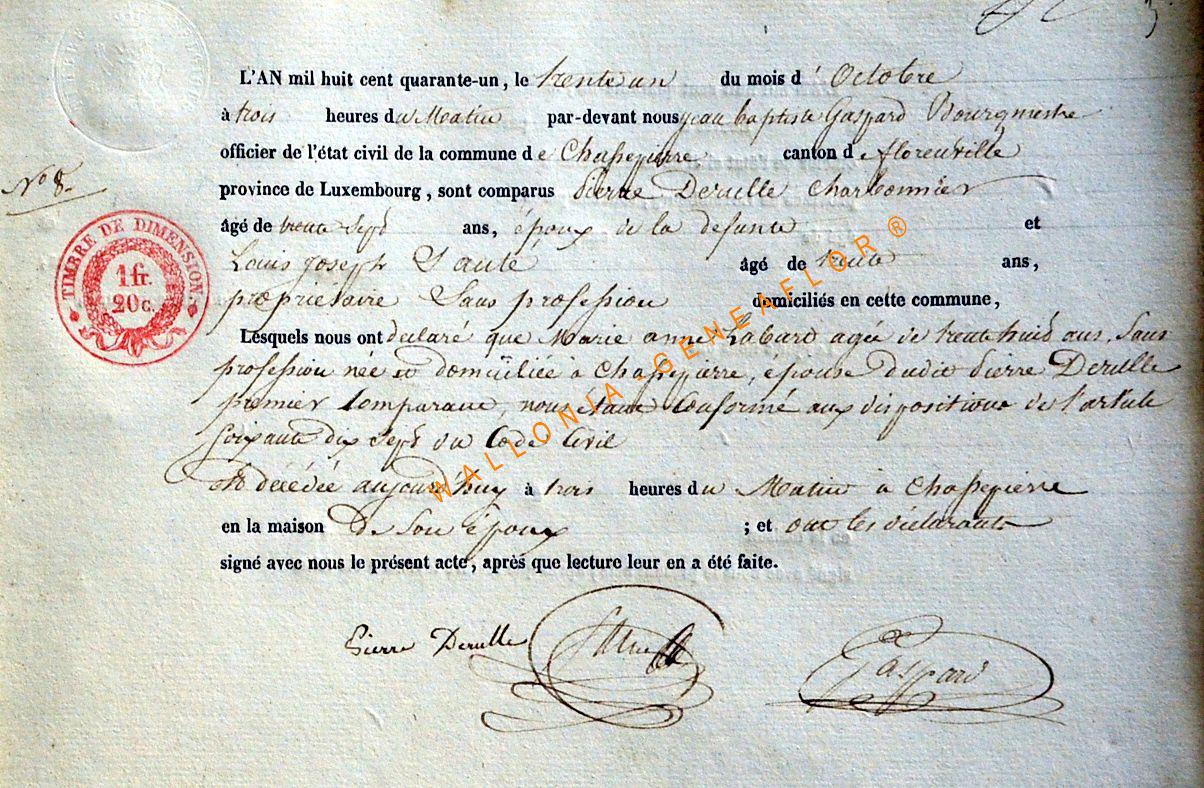 L'AN mil huit cent quarante-un, le trente un du mois d' Octobre
à trois heures du Matin par-devant nous jean baptiste Gaspard Bourgmestre
officier de l'état civil de la commune de Chassepierre canton de florenville
province de Luxembourg, sont comparus Pierre Derulle Charbonnier
N° 8.
âgé de trente Sept ans, époux de la defunte et
Louis joseph âgé de trente ans,
propriétaire Sans profession domiciliés en cette commune,
Lesquels nous ont declaré que Marie anne agée de trente huit ans, Sans
profession née et domiciliée à Chassepierre, épouse dudit Pierre Derulle
premier Comparant, nous étant Conformé aux dispositions de l'article
Soixante dix Sept du Code Civil
est décédée aujourd'huy à trois heures du Matin à Chassepierre
en la maison De Son Epoux ; et ont les déclarants
signé avec nous le présent acte, après que lecture leur en a été faite.
Pierre Derulle
Gaspard
TIMBRE DE DIMENSION.
1 fr.
20 c.
WALLONIA-GENEAFLOR®